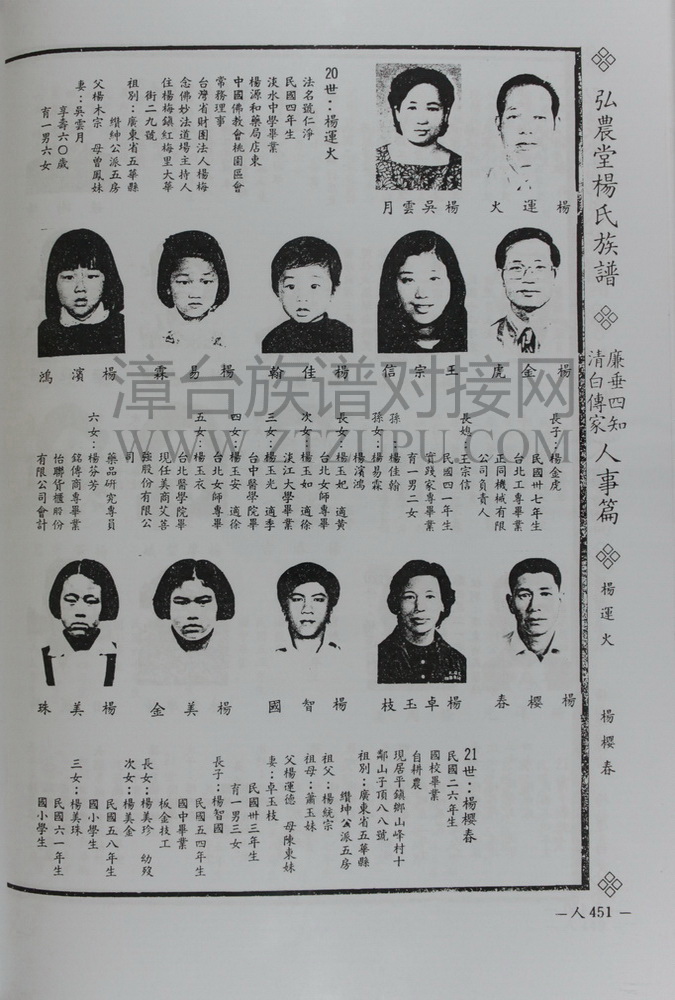 弘農堂楊氏族譜
廉垂四知
清白傳家
人事篇
楊運火
楊櫻春
楊運火
楊吳雲月
20世：楊運火
法名號仁淨
民國四年生
淡水中學畢業
楊源和藥局店東
中國佛教會桃園區會
常務理事
台灣省財團法人楊梅
念佛妙法道場主持人
住楊梅鎮紅梅里大華
街二九號
祖別：廣東省五華縣
纘紳公派五房
父楊木宗　母曾鳳妹
妻：吳雲月
享壽六0歲
育一男六女
楊金虎
王宗信
楊佳翰
楊易霖
楊濱鴻
長子：楊金虎
民國卅七年生
台北工專畢業
正同機械有限
公司負責人
長媳：王宗信
民國四一年生
實踐家專畢業
育一男二女
孫：楊佳翰
孫女：楊易霖
楊濱鴻
長女：楊玉妃　適黃
台北女師專畢
次女：楊玉如　適徐
淡江大學畢業
三女：楊玉光　適李
台中醫學院畢
四女：楊玉安　適徐
台北女師專畢
五女：楊玉衣
台北醫學院畢
現任美商艾菩
強股份有限公
司
藥品研究專員
六女：楊芬芳
銘傳商專畢業
怡聯貨櫃股份
有限公司會計
楊櫻春
楊卓玉枝
楊智國
楊美金
楊美珠
21世：楊櫻春
民國二六年生
國校畢業
自耕農
現居平鎮鄉山峰村十
鄰山子頂八八號
祖別：廣東省五華縣
纘紳公派五房
祖父：楊統宗
祖母：蕭玉妹
父楊運德　母陳東妹
妻：卓玉枝
民國卅三年生
育一男三女
長子：楊智國
民國五四年生
國中畢業
板金技工
長女：楊美珍　幼歿
次女：楊美金
民國五八年生
國小學生
三女：楊美珠
民國六一年生
國小學生
—人451—
漳台族谱对接网
WWW.ZTZUPU.COM